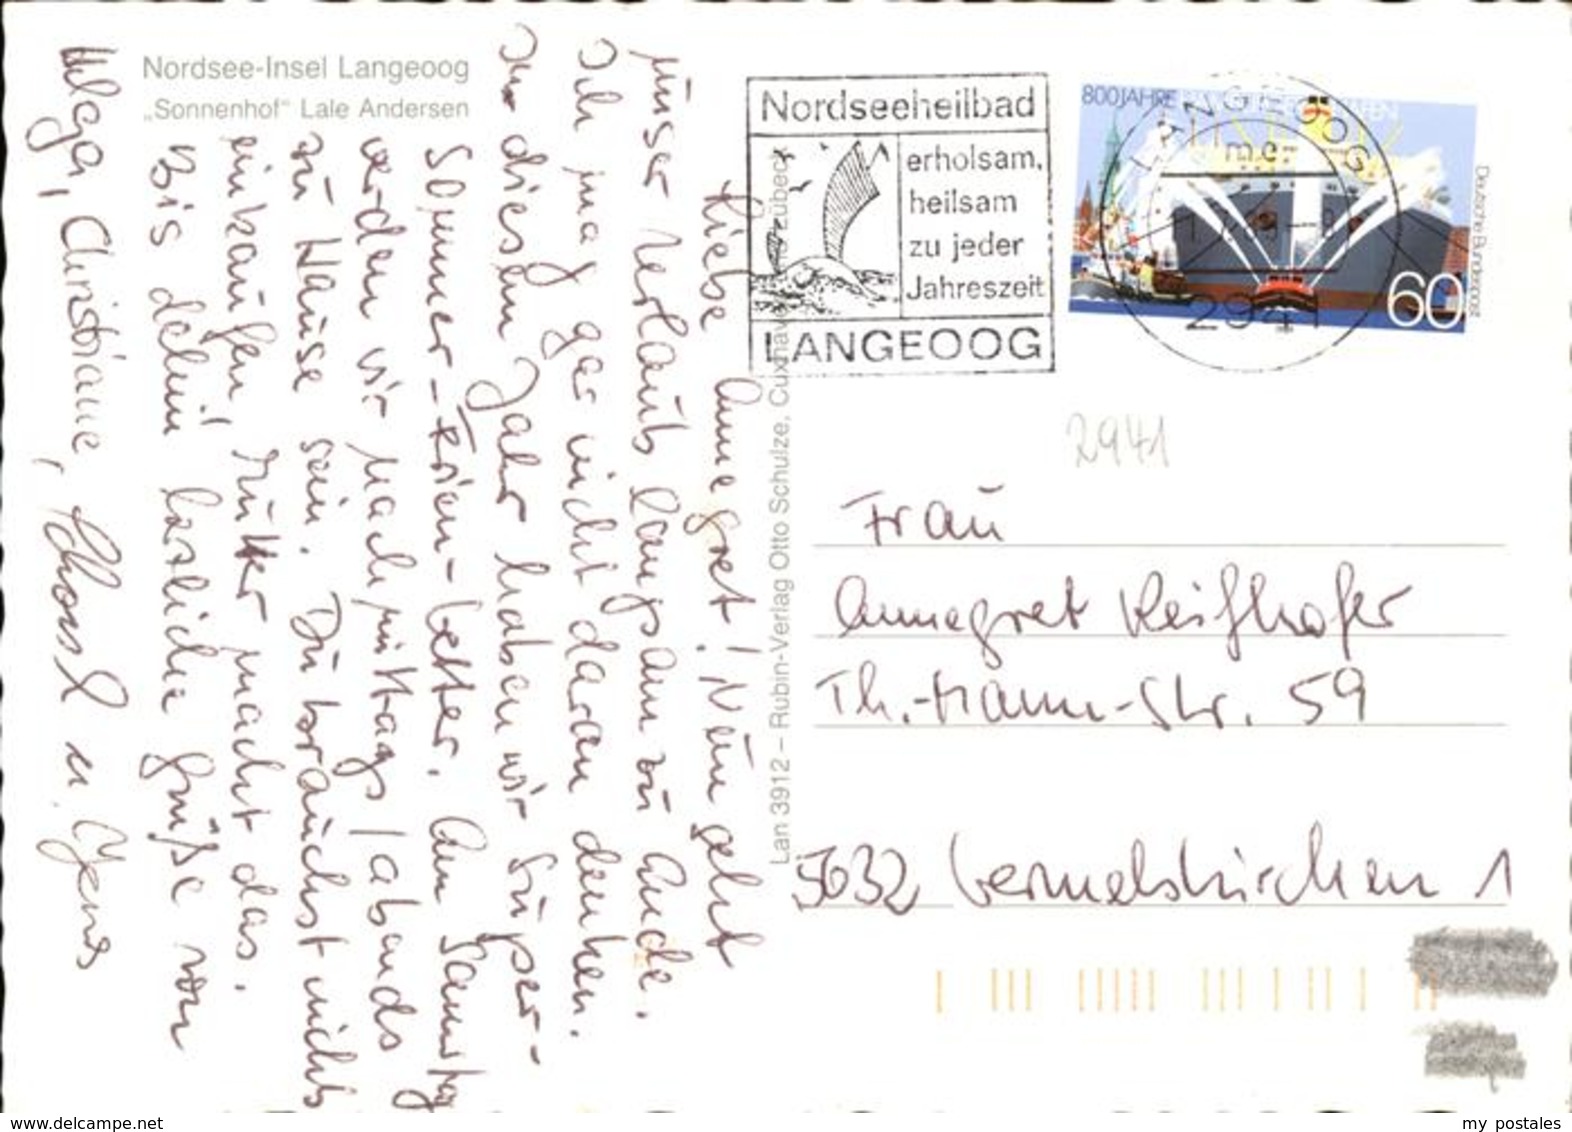 Nordsee-Insel Langeoog
„Sonnenhof“ Lale Andersen
Liebe Annegret! Nun geht
unser Urlaub langsam zu Ende.
Ich mag gar nicht daran denken.
In diesem Jahr haben wir super-
Sommer-Ferien-Wetter. Am Samstag
werden wir nachmittags/abends
zu Hause sein. Du brauchst nichts
einkaufen, Mutter macht das.
Bis dahin herzliche Grüße von
Helga, Christiane, u. Jens
Lan 3912 – Rubin-Verlag Otto Schulze, Cuxhaven
Nordseeheilbad
erholsam,
heilsam
zu jeder
Jahreszeit
LANGEOOG
800 JAHRE
LANGEOOG
2941
60
Deutsche Bundespost
2941
Frau
Annegret Reifhofer
Th.-Mann-Str. 59
5632 Wermelskirchen 1
www.delcampe.net
my_postales